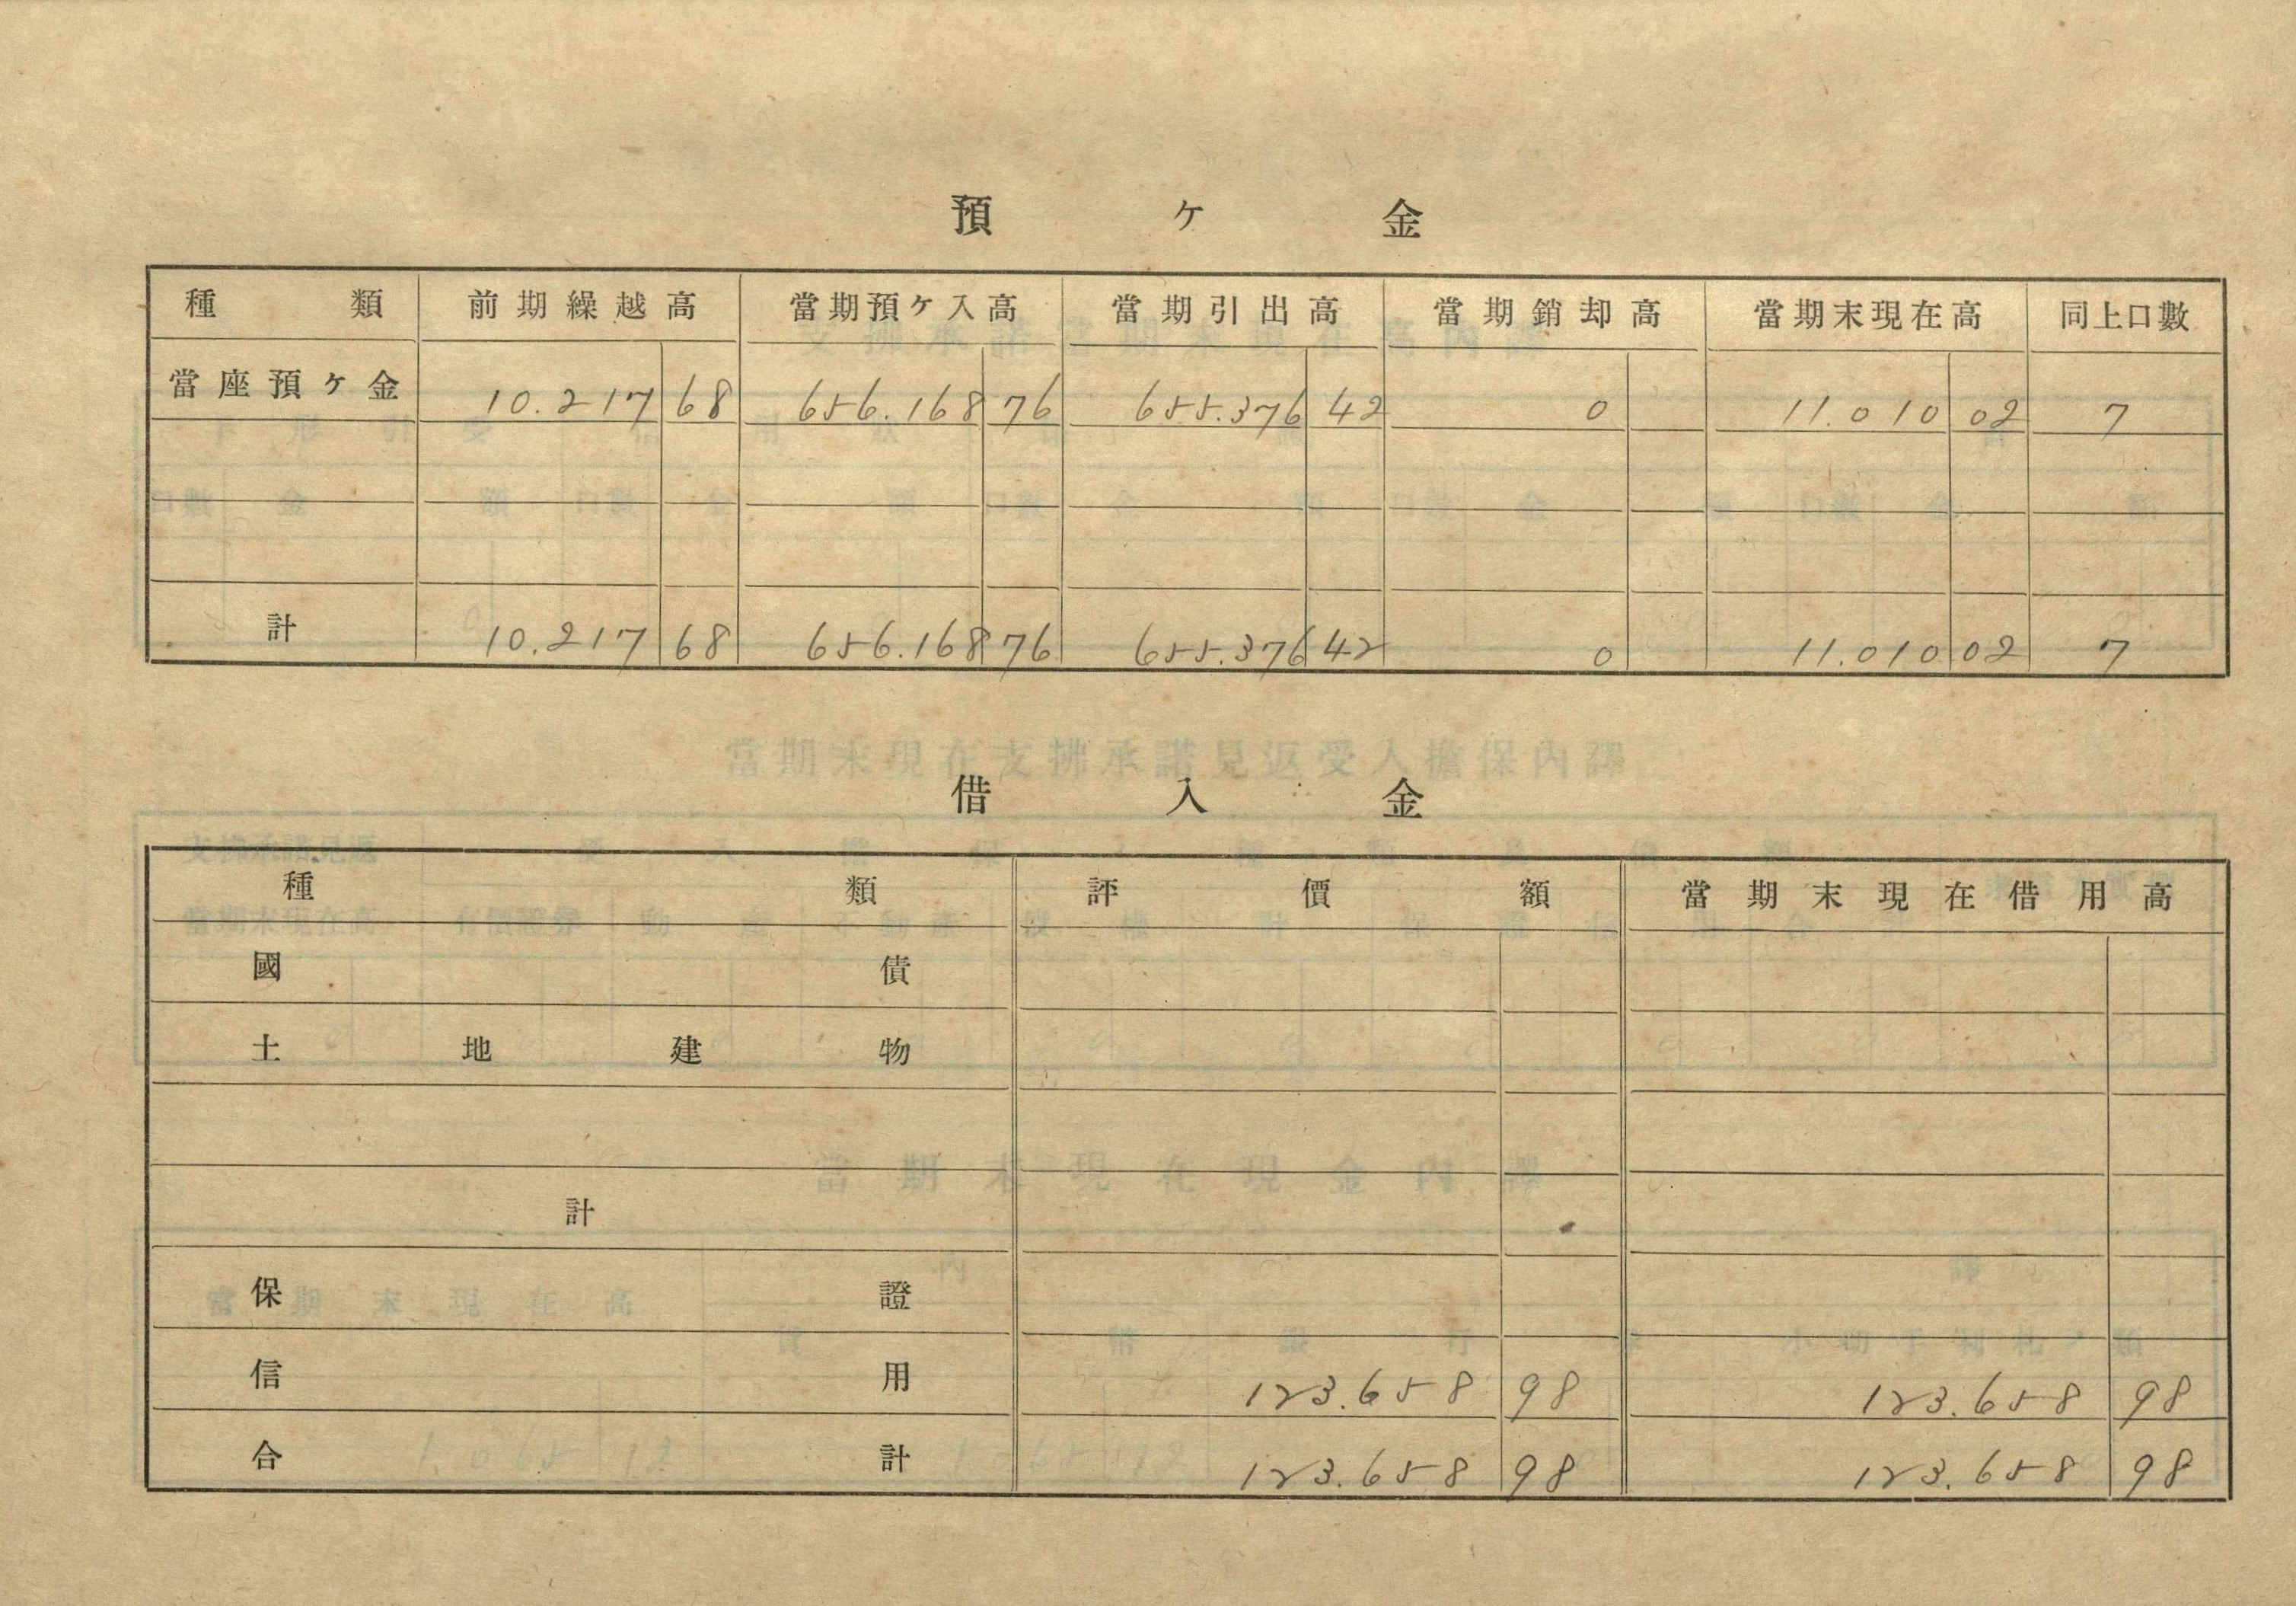 預ヶ金
種類 前期繰越高 當期預ヶ入高 當期引出高 當期銷却高 當期末現在高 同上口數
當座預ヶ金 10.217 68 656.168 76 655.376 42 0 11.010 02 7
計 10.217 68 656.168 76 655.376 42 0 11.010 02 7
當期末現在支拂承諾見返受入擔保內譯
借入金
種類 評價額 當期末現在借用高
國債
土地建物
當期末現在現金內譯
計
保證
信用 123.658 98 123.658 98
合計 123.658 98 123.658 98